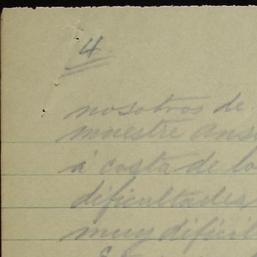 4
nosotros de
muestre ans
á costa de lo
dificultades
muy dificil